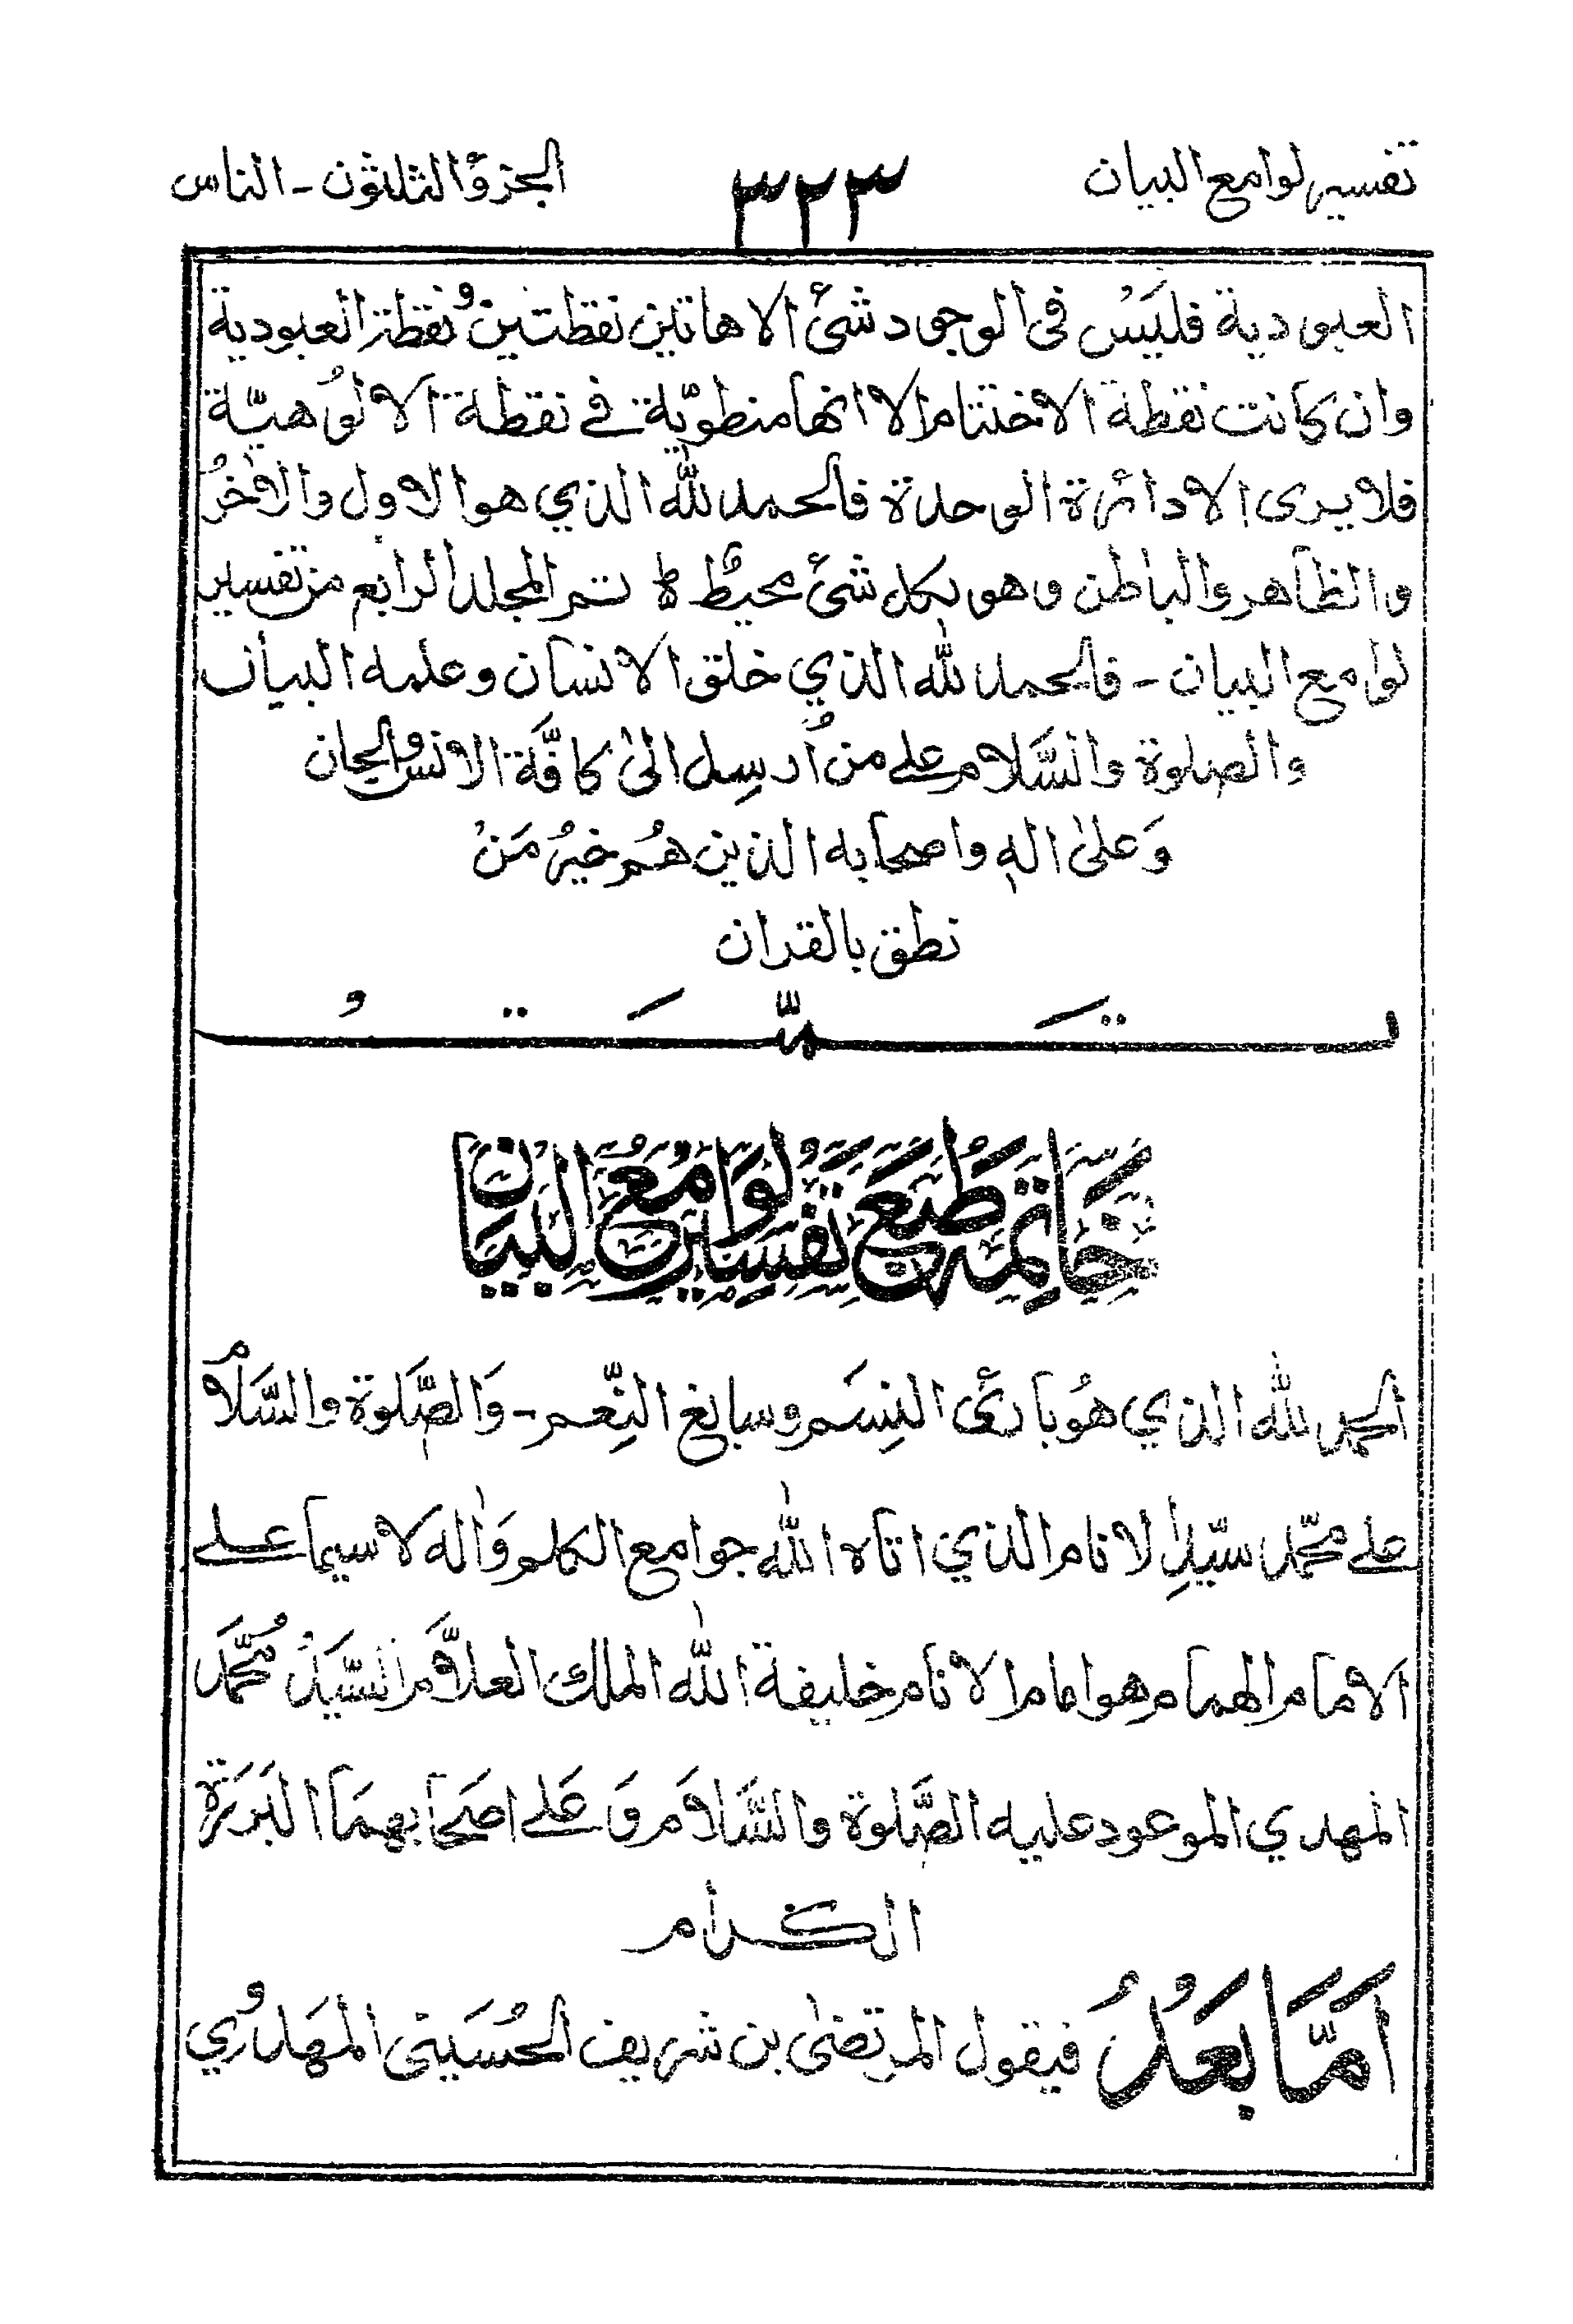 تفسير لوامع البيان
٣٢٣
الجزؤ الثلثون - الناس
العبودية فليَسْ فى الوجود شئ الا هاتين نقطتين و نقطة العبودية
وان كانت نقطة الاختتام الا انها منطويّة في نقطة الالُوهيّة
فلا يرى الا دائرة الوحدة فالحمد لله الذي هو الاول والاٰخرُ
والظاهر والباطن وهو بكل شئ محيطٌ ط تم المجلد الرابع من تفسير
لوامع البيان - فالحمد لله الذي خلق الانسان وعلمه البيان
والصلوة والسَّلام على من اُرسِل الىٰ كافَّة الانس والجان
وَعلىٰ اله واصحابه الذين هُم خيرُ مَنْ
نطق بالقران
تمّت
خَاتمة طَبع تفسير لَوَامع البَيَان
الحمد لله الذي هُو بارئ النِسَم وسابغ النِّعم - وَالصَّلوة والسَّلامُ
على محمّد سيّدِ الانام الذي اتاه الله جوامع الكلم وَاٰله لاسيما على
الامام الهمام هو امام الانام خليفة الله الملك العلاَّم السَّيّدْ مُحَمَّد
المهدي الموعود عليه الصَّلوة والسَّلام وَ عَلى اصحَابهمَا البَرَرَة
الكرام
اَمَّا بَعَدُ فيقول المرتضىٰ بن شريف الحُسَينى المهَدوُي